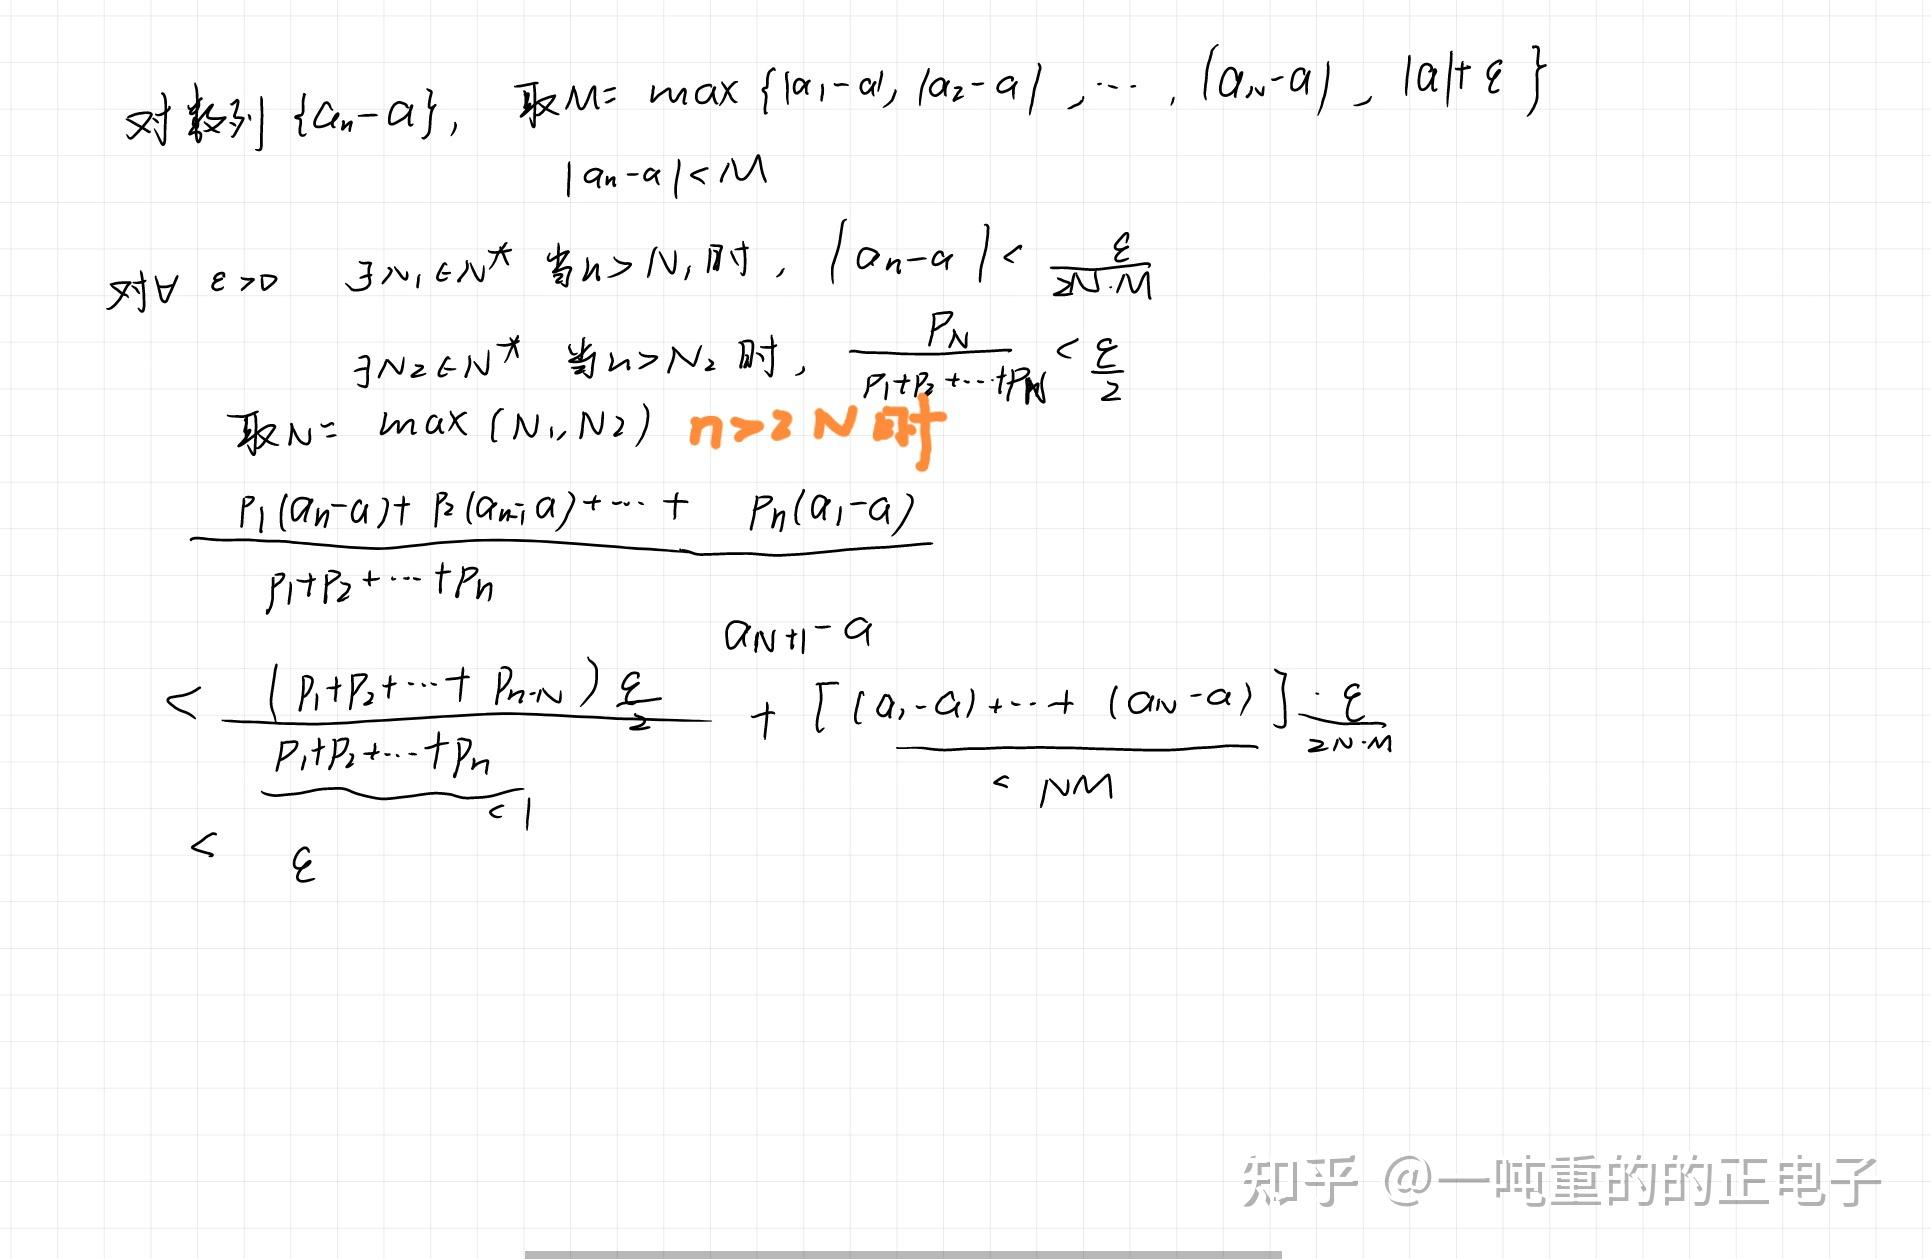 对数列 {aₙ-a}, 取M= max {|a₁-a|, |a₂-a|, ⋯, |a_N-a|, |a|+ε}
|aₙ-a|<M
对∀ ε>0 ∃N₁∈N* 当n>N₁时, |aₙ-a|< ε/(2N·M)
∃N₂∈N* 当n>N₂时, P_N/(P₁+P₂+⋯+P_N) < ε/2
取N= max (N₁,N₂) n>2N时
(P₁(aₙ-a)+P₂(aₙ₋₁-a)+⋯+Pₙ(a₁-a))/(P₁+P₂+⋯+Pₙ)
a_{N+1}-a
< ((P₁+P₂+⋯+P_{n-N}) ε/2)/(P₁+P₂+⋯+Pₙ) + [(a₁-a)+⋯+(a_N-a)]·ε/(2N·M)
<1 < NM
< ε
知乎 @一吨重的的正电子